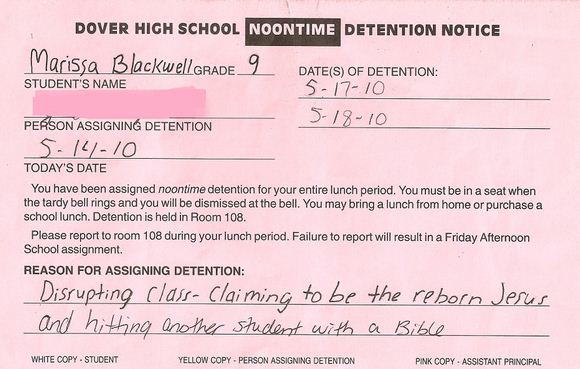 DOVER HIGH SCHOOL NOONTIME DETENTION NOTICE
Marissa Blackwell GRADE 9
STUDENT'S NAME
DATE(S) OF DETENTION:
5-17-10
5-18-10
PERSON ASSIGNING DETENTION
5-14-10
TODAY'S DATE
You have been assigned noontime detention for your entire lunch period. You must be in a seat when
the tardy bell rings and you will be dismissed at the bell. You may bring a lunch from home or purchase a
school lunch. Detention is held in Room 108.
Please report to room 108 during your lunch period. Failure to report will result in a Friday Afternoon
School assignment.
REASON FOR ASSIGNING DETENTION:
Disrupting class- claiming to be the reborn Jesus
and hitting another student with a Bible
WHITE COPY - STUDENT YELLOW COPY - PERSON ASSIGNING DETENTION PINK COPY - ASSISTANT PRINCIPAL